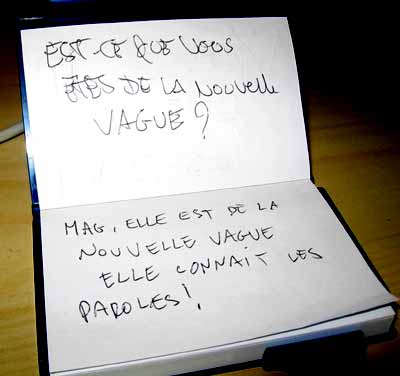 EST-CE QUE VOUS
ÊTES DE LA NOUVELLE
VAGUE?
MAG, ELLE EST DE LA
NOUVELLE VAGUE
ELLE CONNAIT LES
PAROLES!